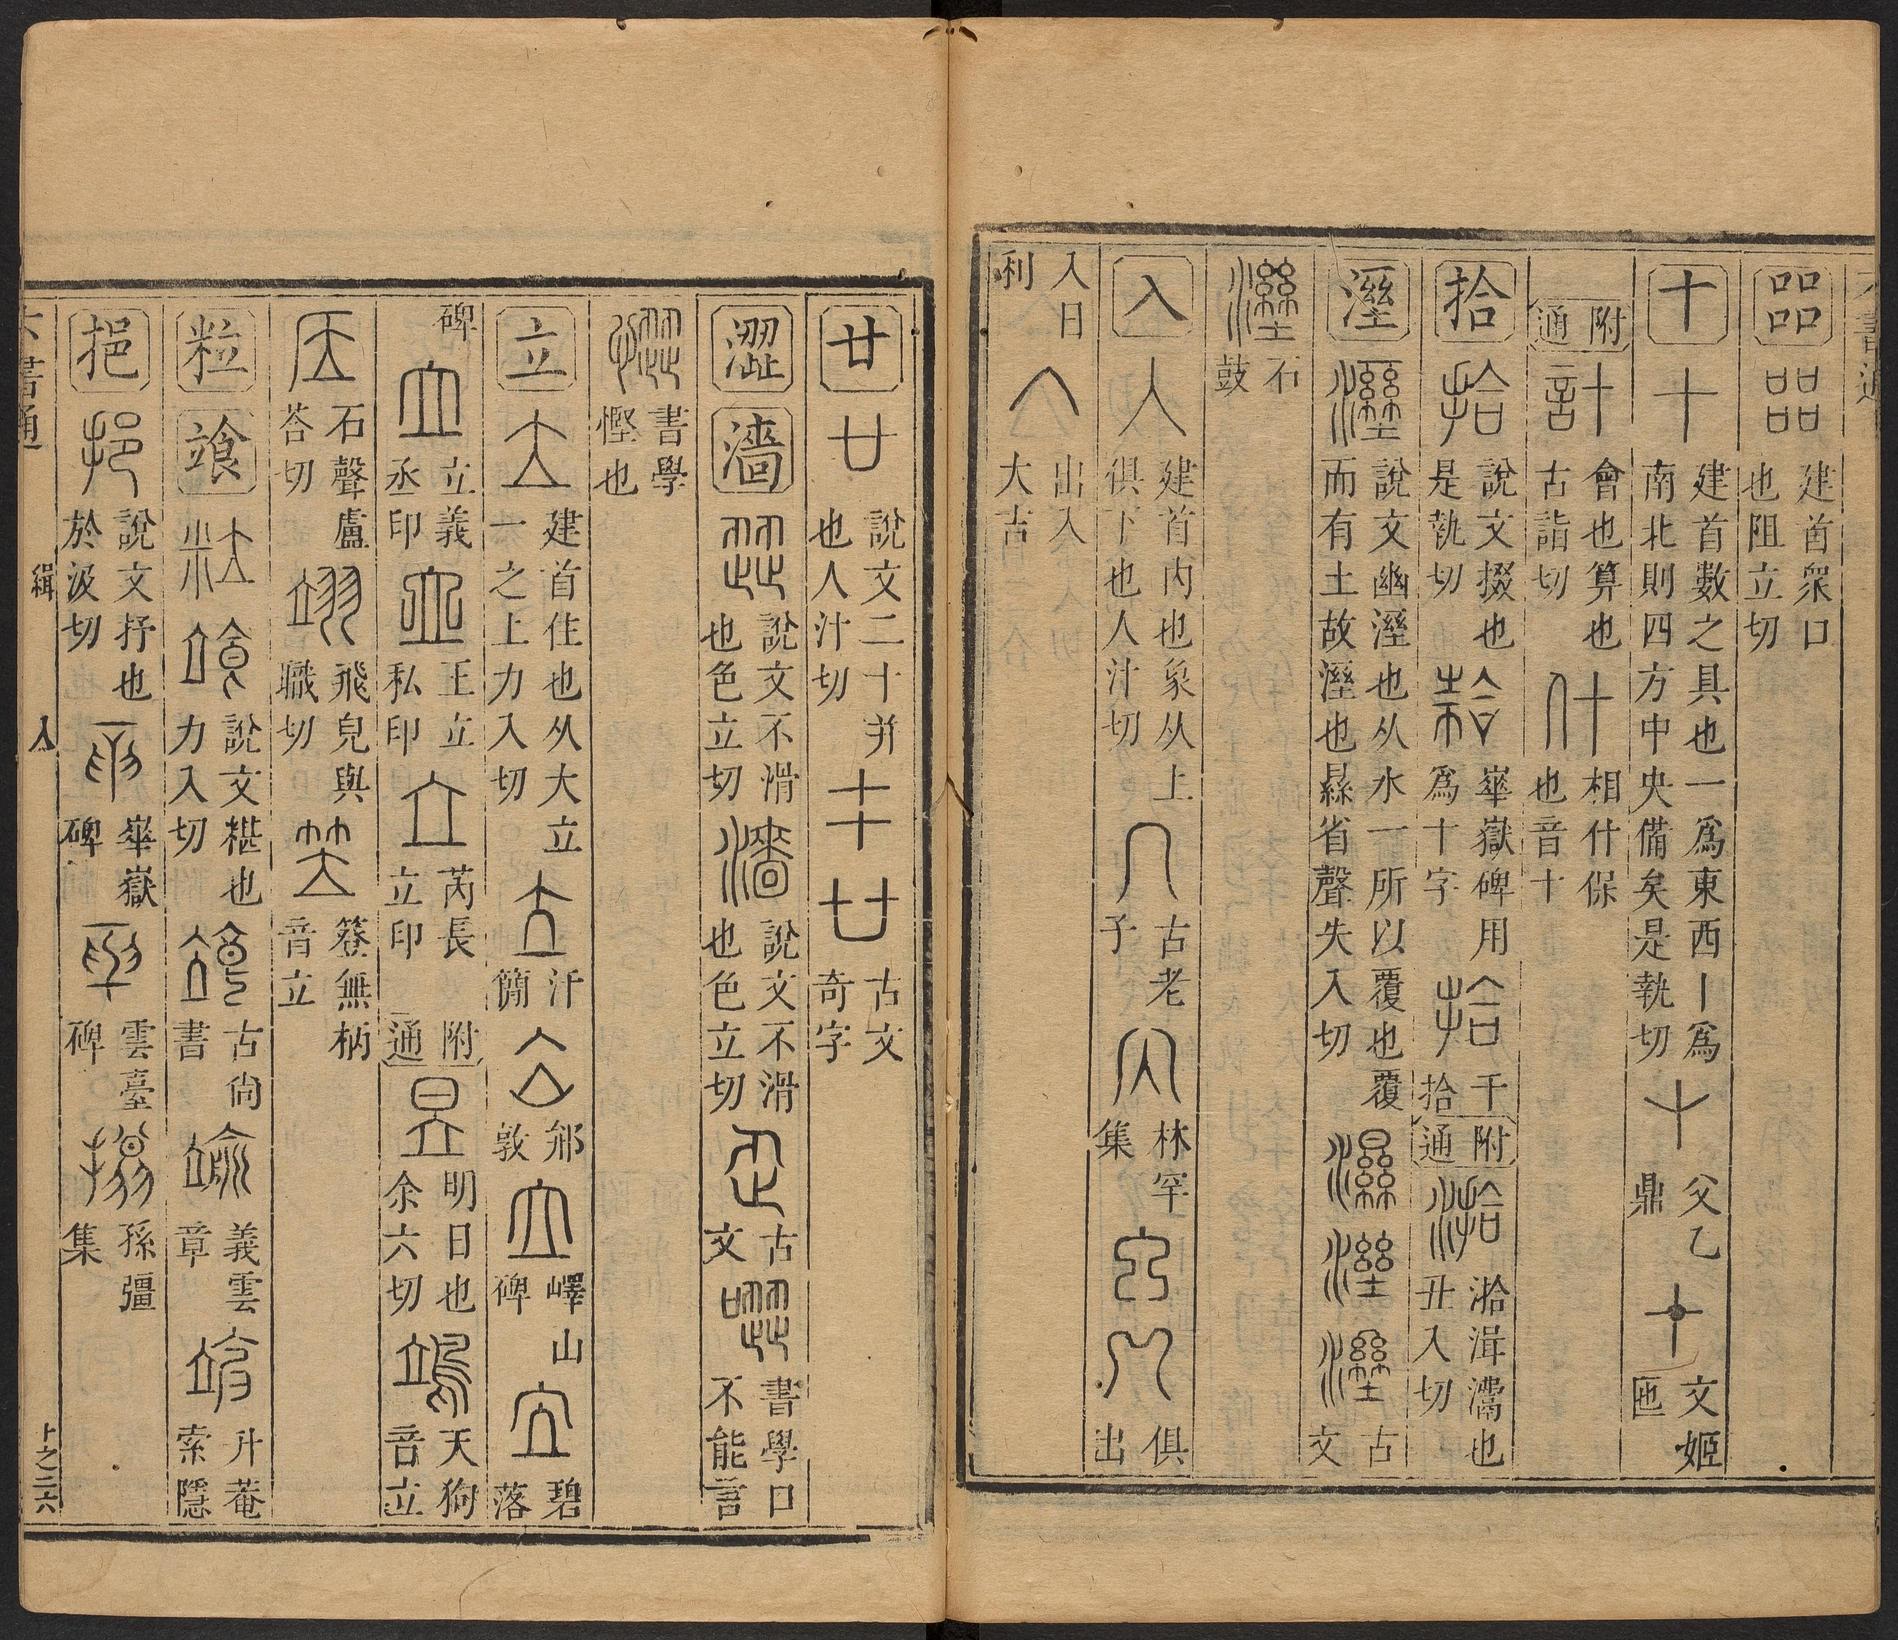 㗊 建首眾口也阻立切
十 建首數之具也一為東西丨為南北則四方中央備矣是執切 父乙鼎 文姬匜
附通 計 會也算也古詣切 什 相什保也音十
拾 說文掇也是執切 華嶽碑用為十字 千拾 附通 湁 湁湒灊也丑入切
溼 說文幽溼也从水一所以覆也覆而有土故溼也㬎省聲失入切 古文
石鼓
入 建首內也象从上俱下也人汁切 古老子 林罕集 俱出
入日利 出入大吉
廿 說文二十并也人汁切 古文奇字
澀 濇 說文不滑也色立切 說文不滑也色立切 古文 書學口不能言
書學慳也
立 建首住也从大立一之上力入切 汗簡 邾敦 嶧山碑 碧落
碑 立義丞印 王立私印 芮長立印 附通 昱 明日也余六切 天狗音立
石聲盧荅切 翊 飛皃與職切 簦無柄音立
粒 𩚷 說文糂也力入切 古尚書 義雲章 升菴索隱
挹 說文抒也於汲切 華嶽碑 雲臺碑 孫彊集
六書通 緝 入 卜之二六